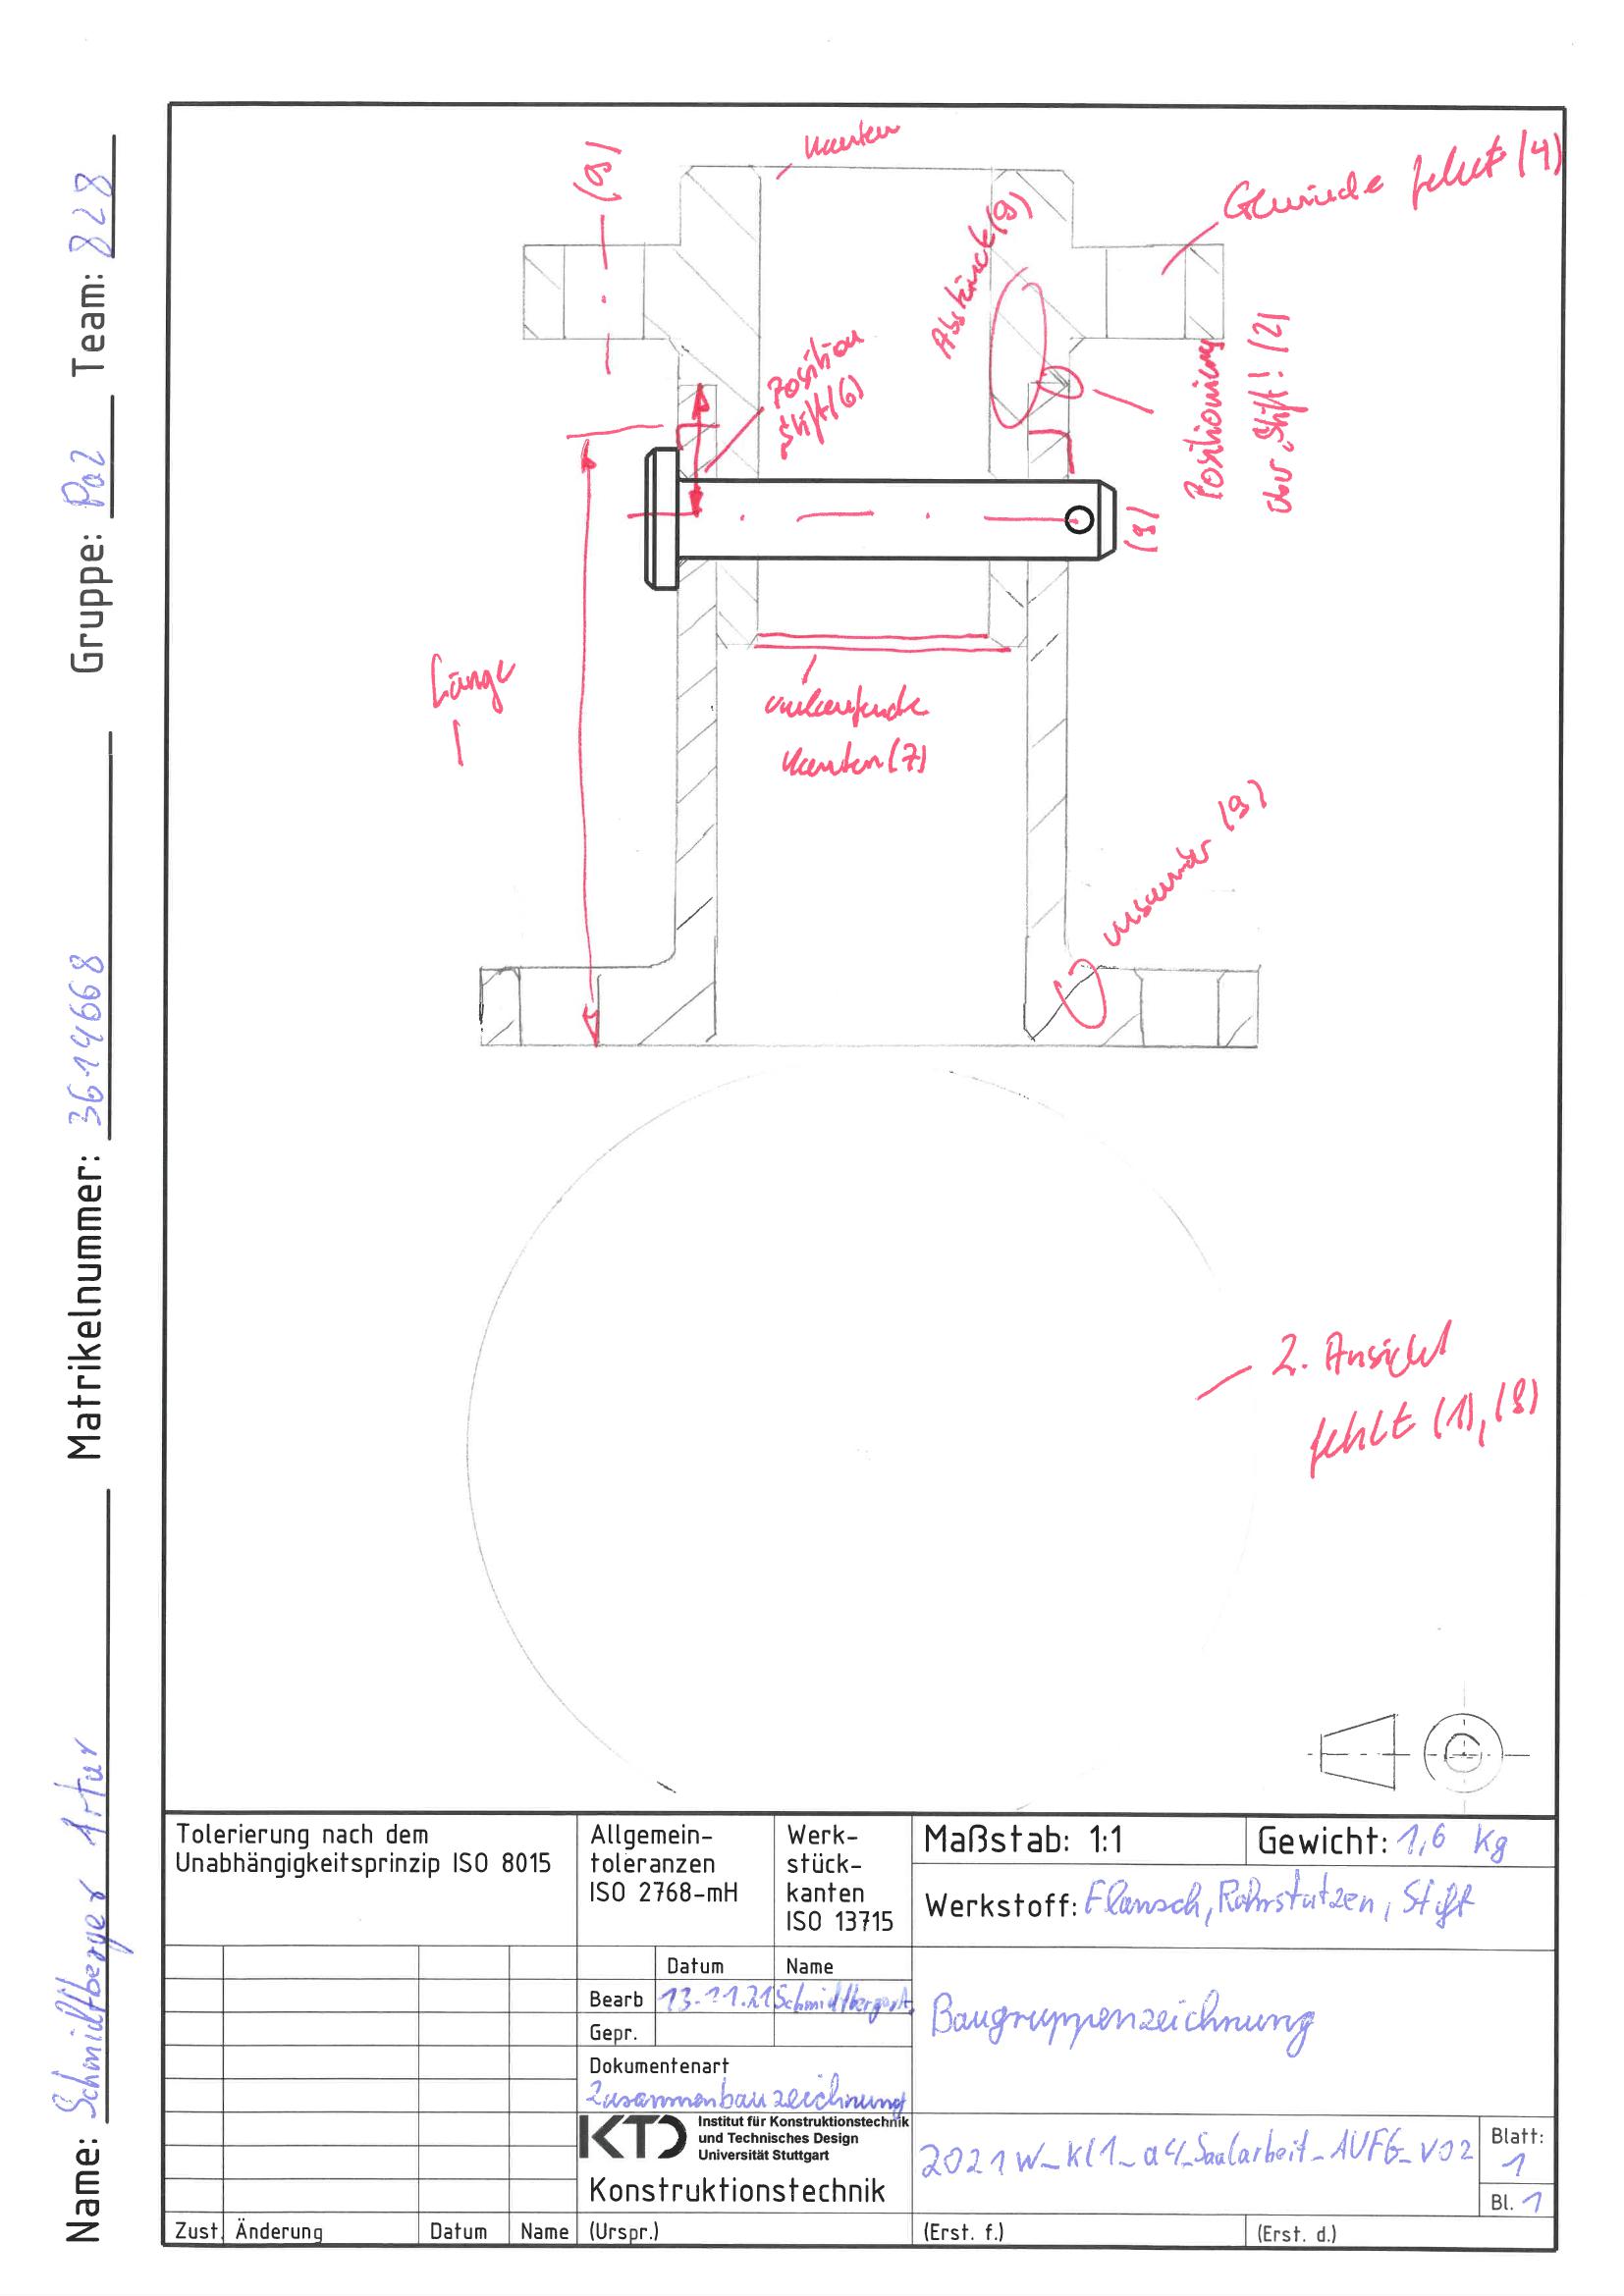 Name: Schmidtberger Artur
Matrikelnummer: 3614668
Gruppe: Pa2
Team: 828
Kanten
(8)
Gewinde fehlt (4)
Abstände (9)
Position
Stift (6)
Positionierung
der Stift! (2)
(8)
Länge
umlaufende
Kanten (7)
(9)
2. Ansicht
fehlt (1), (8)
Tolerierung nach dem
Unabhängigkeitsprinzip ISO 8015
Allgemein-
toleranzen
ISO 2768-mH
Werk-
stück-
kanten
ISO 13715
Maßstab: 1:1
Gewicht: 1,6 kg
Werkstoff: Flansch, Rohrstutzen, Stift
Datum Name
Bearb 13.11.21 Schmidtberger A.
Gepr.
Baugruppenzeichnung
Dokumentenart
Zusammenbauzeichnung
KTD
Institut für Konstruktionstechnik
und Technisches Design
Universität Stuttgart
Konstruktionstechnik
2021W_Kl1_a4_Saalarbeit_AUFG_V02
Blatt:
1
Bl. 1
Zust. Änderung Datum Name (Urspr.) (Erst. f.) (Erst. d.)